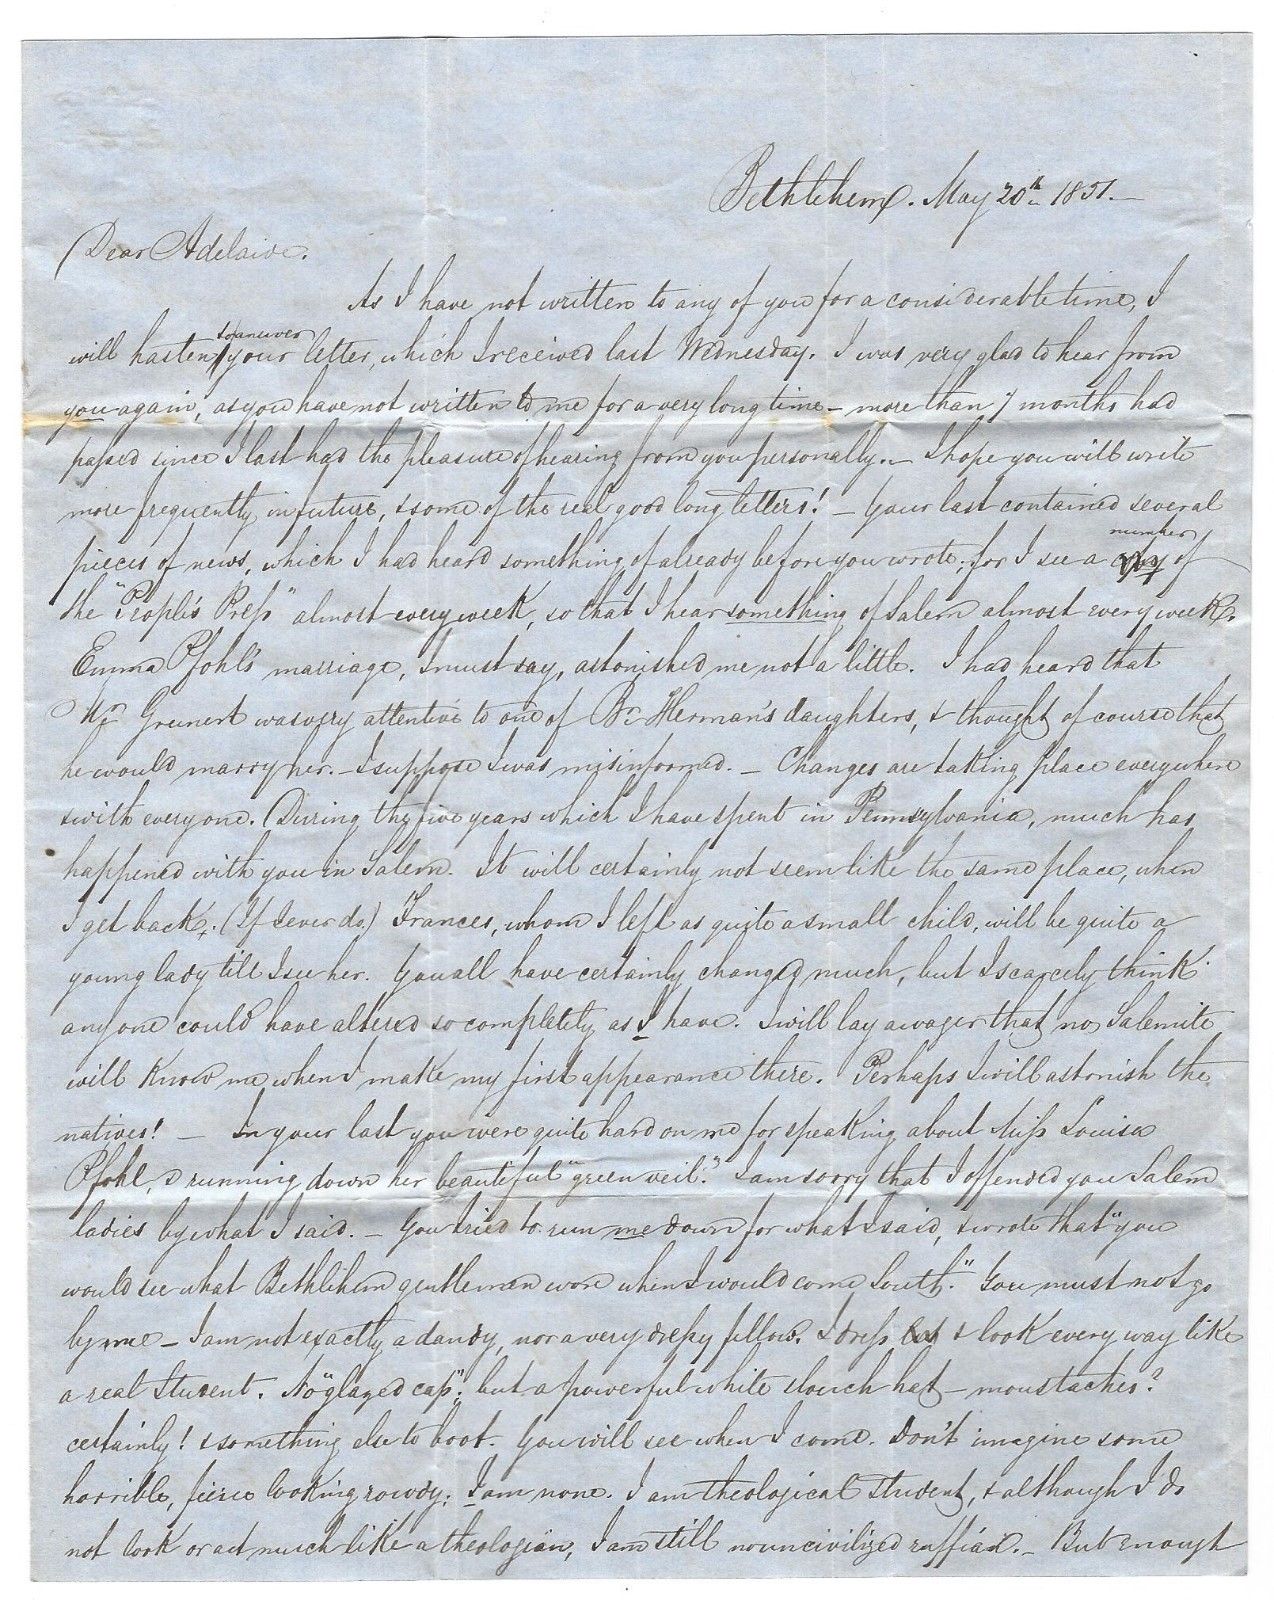 Bethlehem. May 20th 1851.—
Dear Adelaide.
As I have not written to any of you for a considerable time, I
will hasten to answer your letter, which I received last Wednesday. I was very glad to hear from
you again, as you have not written to me for a very long time — more than 7 months had
passed since I last had the pleasure of hearing from you personally. — I hope you will write
more frequently in future, & some of the real good long letters! — Your last contained several
pieces of news, which I had heard something of already before you wrote; for I see a number of
the "People's Press" almost every week, so that I hear something of Salem almost every week.
Emma Pfohl's marriage, I must say, astonished me not a little. I had heard that
Mr Greunert was very attentive to one of Br Herman's daughters, & thought of course that
he would marry her. — I suppose I was misinformed. — Changes are taking place everywhere
& with every one. During the five years which I have spent in Pennsylvania, much has
happened with you in Salem. It will certainly not seem like the same place, when
I get back. (If I ever do.) Frances, whom I left as quite a small child, will be quite a
young lady till I see her. You all have certainly changed much, but I scarcely think
any one could have altered so completely as I have. I will lay a wager that no Salemite
will know me when I make my first appearance there. Perhaps I will astonish the
natives! — In your last you were quite hard on me for speaking about Miss Louisa
Pfohl, & running down her beautiful "green veil." I am sorry that I offended you Salem
ladies by what I said. — You tried to run me down for what I said, & wrote that "you
would see what Bethlehem gentlemen wore when I would come South." You must not go
by me — I am not exactly a dandy, nor a very dressy fellow. I dress & look every way like
a real Student. No "glazed cap"; but a powerful white slouch hat — moustaches?
certainly! & something else to boot. You will see when I come. Don't imagine some
horrible, fierce looking rowdy; I am none. I am theological student, & although I do
not look or act much like a theologian, I am still no uncivilized ruffian. — But enough